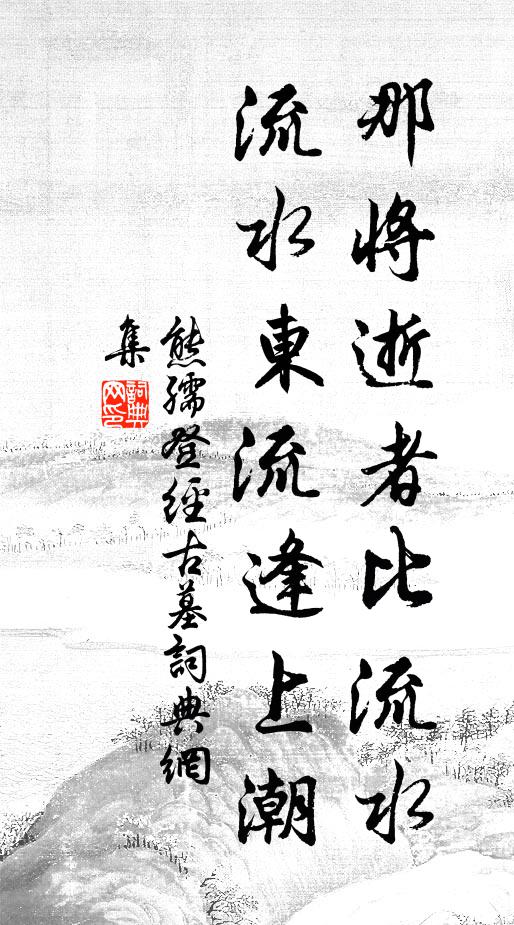 那將逝者比流水
流水東流逢上潮
熊孺登經古墓詞典網
集
詞典
网印